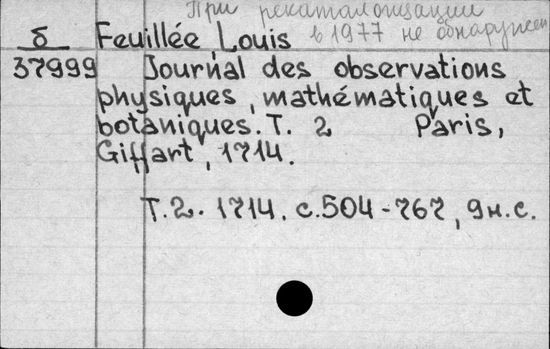 При рекаталогизации
в 1977 не обнаружен
б
37999
Feuillée Louis
Journal des observations
physiques, mathématiques et
botaniques. T. 2 Paris,
Giffart, 1714.
T. 2. 1714. c. 504-767, 9 н. с.